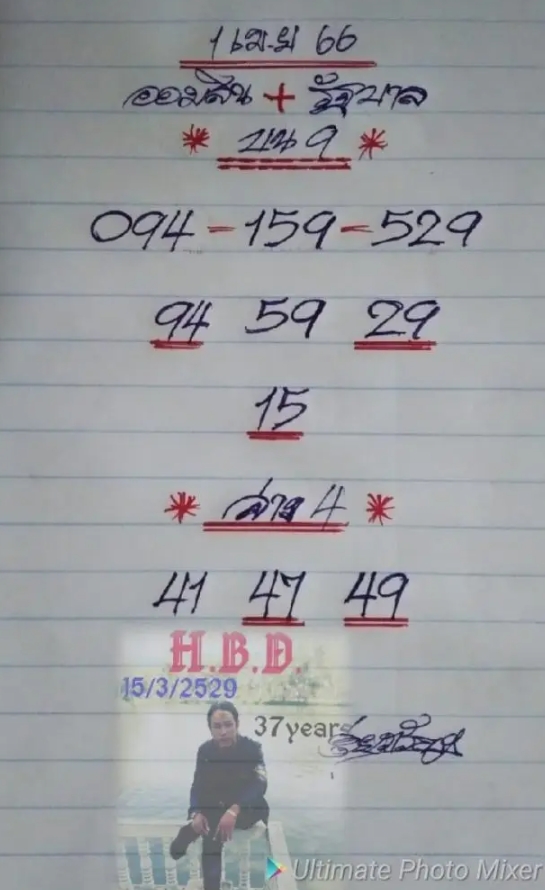 1 เม.ย 66
ออมสิน + รัฐบาล
* บน 9 *
094 - 159 - 529
94 59 29
15
* ล่าง 4 *
41 47 49
H.B.D.
15/3/2529
37years
Ultimate Photo Mixer